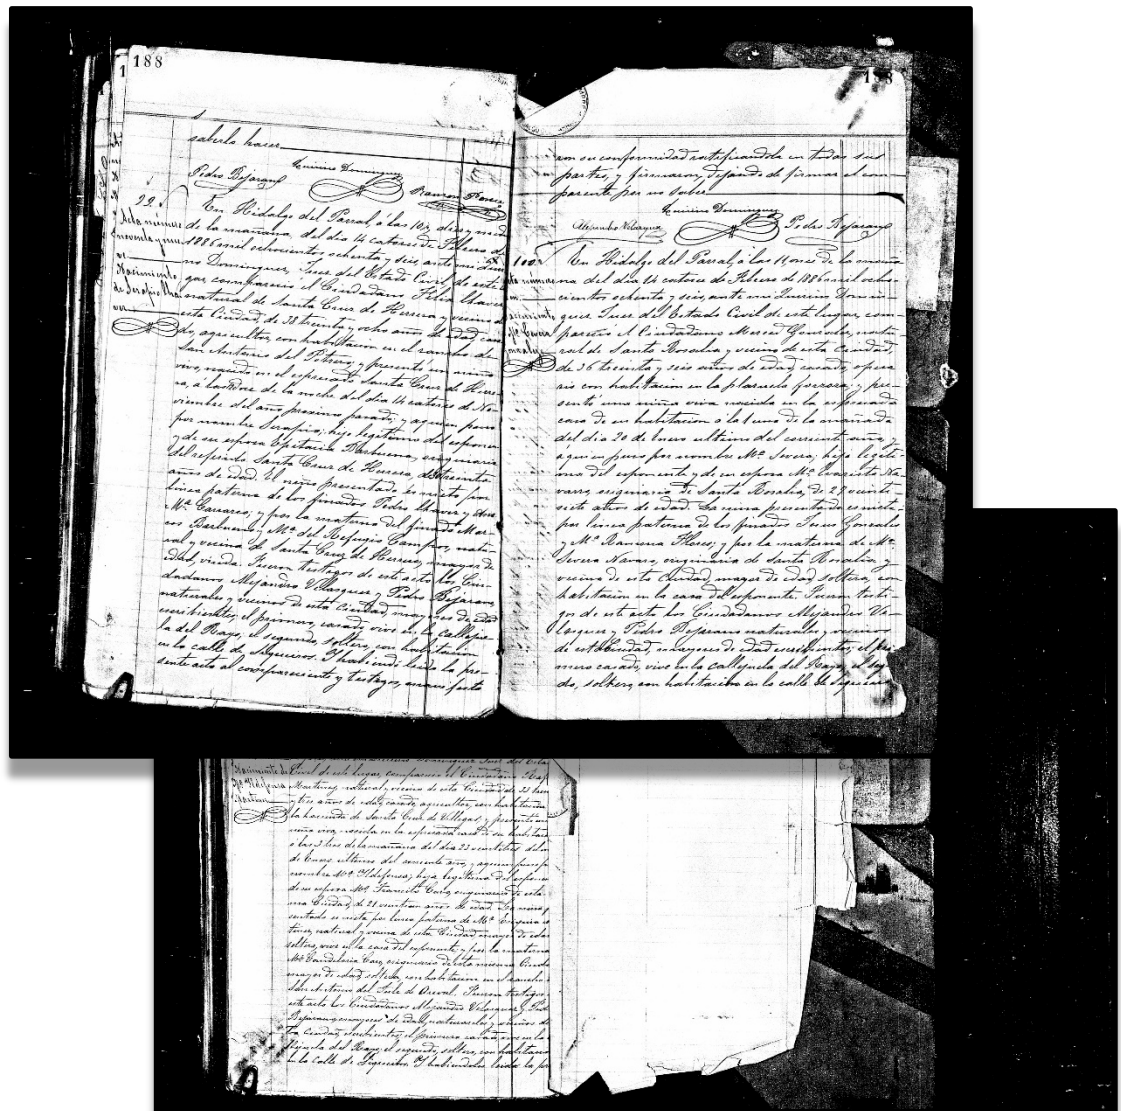 188
saberlo hacer
Pedro Bejarano Quirino Domínguez
99
Acta número
noventa y nueve
Nacimiento
de Serapio
En Hidalgo del Parral, á las 10 diez y media
de la mañana, del dia 14 catorce de Febrero de
1886 mil ochocientos ochenta y seis, ante mi Quiri
no Dominguez, Juez del Estado Civil de este lu
gar, compareció el Ciudadano Pedro
natural de Santa Cruz de Herrera y vecino de
esta Ciudad de 38 treinta y ocho años de edad, casa
do, agricultor, con habitacion en el rancho de
San Antonio del Potrero, y presentó un niño
vivo, nacido en el espresado Santa Cruz de Herre
ra, á las doce de la noche del dia 14 catorce de No
viembre del año proximo pasado; y á quien puso
por nombre Serapio; hijo legitimo del esponente
y de su esposa Epitacia Barbuena, originaria
del repetido Santa Cruz de Herrera, de treinta
años de edad. El niño presentado es nieto por
linea paterna de los finados Pedro y
Mª y por la materna del finado Mar
cos Barbuena y Mª del Refugio Campos, natu
ral y vecina de Santa Cruz de Herrera, mayor de
edad, viuda. Fueron testigos de este acto los Ciu
dadanos Alejandro Velasquez y Pedro Bejarano,
naturales y vecinos de esta Ciudad, mayores de edad
escribientes, el primero, casado, vive en la callejue
la del Rayo, el segundo, soltero, con habitacion
en la calle de Segueiros. Y habiendo leido la pre
sente acta al compareciente y testigos, manifesta
188
ron su conformidad ratificandola en todas sus
partes, y firmaron, dejando de firmar el com
pareciente por no saber
Alejandro Velasquez Quirino Dominguez Pedro Bejarano
100
En Hidalgo del Parral, á las 11 once de la maña
na del dia 14 catorce de Febrero de 1886 mil ocho
cientos ochenta y seis, ante mi Quirino Domin
guez Juez del Estado Civil de este lugar, com
pareció el Ciudadano Merced Gonzalez, natu
ral de Santa Rosalia y vecino de esta Ciudad,
de 36 treinta y seis años de edad, casado, opera
rio con habitacion en la plazuela y pre
sentó una niña viva nacida en la espresada
casa de su habitacion á la una de la mañana
del dia 20 de Enero ultimo del corriente año, y
á quien puso por nombre Mª Severa; hija legiti
ma del esponente y de su esposa Mª Na
varro, originaria de Santa Rosalia, de 27 veinti
siete años de edad. La niña presentada es nieta
por linea paterna de los finados Jesus Gonzalez
y Mª Ramona Flores; y por la materna de Mª
Severa Navarro, originaria de Santa Rosalia y
vecina de esta Ciudad, mayor de edad, soltera, con
habitacion en la casa del esponente. Fueron testi
gos de este acto los Ciudadanos Alejandro Ve
lasquez y Pedro Bejarano naturales y vecinos
de esta Ciudad, mayores de edad escribientes, el pri
mero casado, vive en la callejuela del Rayo, el segun
do, soltero, con habitacion en la calle de Segueiros
Nacimiento de
Mª Ildefonsa
Martinez
Civil de este lugar, compareció el Ciudadano
Martinez natural y vecino de esta Ciudad de 33 trein
y tres años de edad, casado, agricultor, con habitacion
la hacienda de Santa Cruz de Villegas, y presentó una
niña viva, nacida en la espresada casa de su habitacion
á las 3 tres de la mañana del dia 23 veintitres
de Enero ultimo del corriente año, y á quien puso p
nombre Mª Ildefonsa; hija legitima del esponen
de su esposa Mª Francisca Caro, originaria de esta
ma Ciudad, de 21 veintiun años de edad. La niña p
sentada es nieta por linea paterna de Mª
tinez, natural y vecina de esta Ciudad mayor de edad
soltera, vive en la casa del esponente; y por la materna
Mª Candelaria Caro, originaria de esta misma Ciuda
mayor de edad, soltera, con habitacion en el rancho
San Antonio del Tule de Fueron testigos
este acto los Ciudadanos Alejandro Velasquez y Ped
Bejarano, mayores de edad, naturales y vecinos de
ta Ciudad, escribientes, el primero casado, vive en la
llejuela del Rayo; el segundo, soltero, con habitacion
en la Calle de Segueiros. Y habiendoles leido la pr